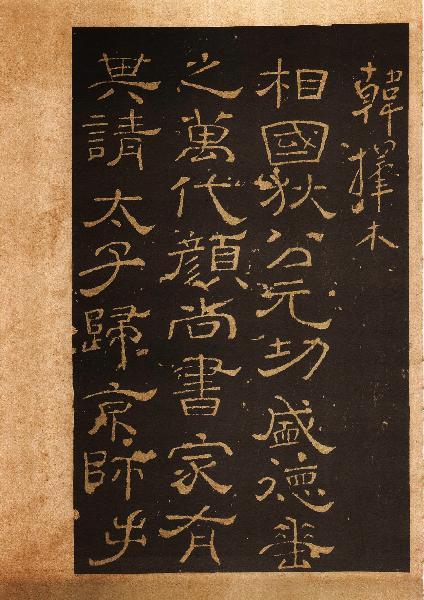 韓擇木
相國狄公元功盛德垂
之萬代顏尚書家有
其請太子歸京師步